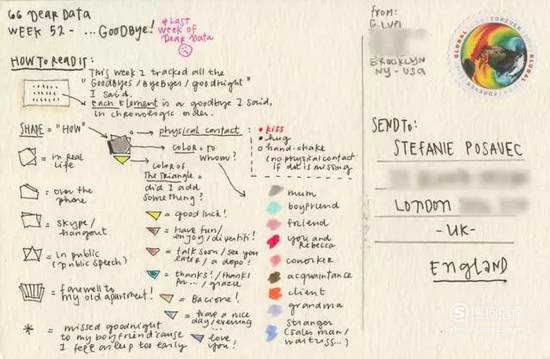 66 DEAR DATA
WEEK 52 - ...GOODBYE!
*LAST
WEEK OF
DEAR DATA
HOW TO READ IT:
This week I tracked all the
"GOODBYES / BYEBYES / goodnight"
I said.
Each Element is a goodbye I said,
in chronological order.
SHAPE = "HOW"
= in real
life
= over the
phone
= SKYPE /
hangout
= in public
(public speech)
= farewell to
my old apartment!
* = missed goodnight
to my boyfriend 'cause
I fell asleep to early
physical contact:
• kiss
• hug
o hand-shake
(no physical contact
if dot is missing
COLOR = TO
WHOM?
COLOR OF
THE TRIANGLE =
did I add
something?
= good luck!
= have fun /
enjoy / divertiti!
= talk soon / see you
later / a dopo!
= thanks! / thanks
for... / grazie
= Bacione!
= have a nice
day / evening
= love
you!
mum
boyfriend
friend
you and
Rebecca
coworker
acquaintance
client
grandma
stranger
(sales man /
waitress...)
FROM:
G. LUPI
BROOKLYN
NY - USA
GLOBAL FOREVER
SEND TO:
STEFANIE POSAVEC
LONDON
- UK -
ENGLAND
搜狗指南